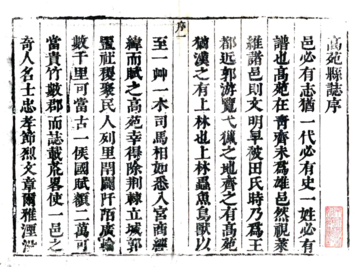 序一
高苑縣誌序
邑必有誌猶一代必有史一姓必有
譜也高苑在青齊未爲雄邑然視萊
維諸邑則文明早被田氏時乃爲王
都近郭游覽弋獵之地齊之有高苑
猶漢之有上林也上林蟲魚鳥獸以
至一艸一木司馬相如悉入宮商經
緯而賦之高苑幸得除荆棘立城郭
置社稷聚民人列里閈闢阡陌廣輪
數千里可當古一侯國賦額二萬可
當貴竹數郡而誌載荒畧使一邑之
奇人名士忠孝節烈文章爾雅湮